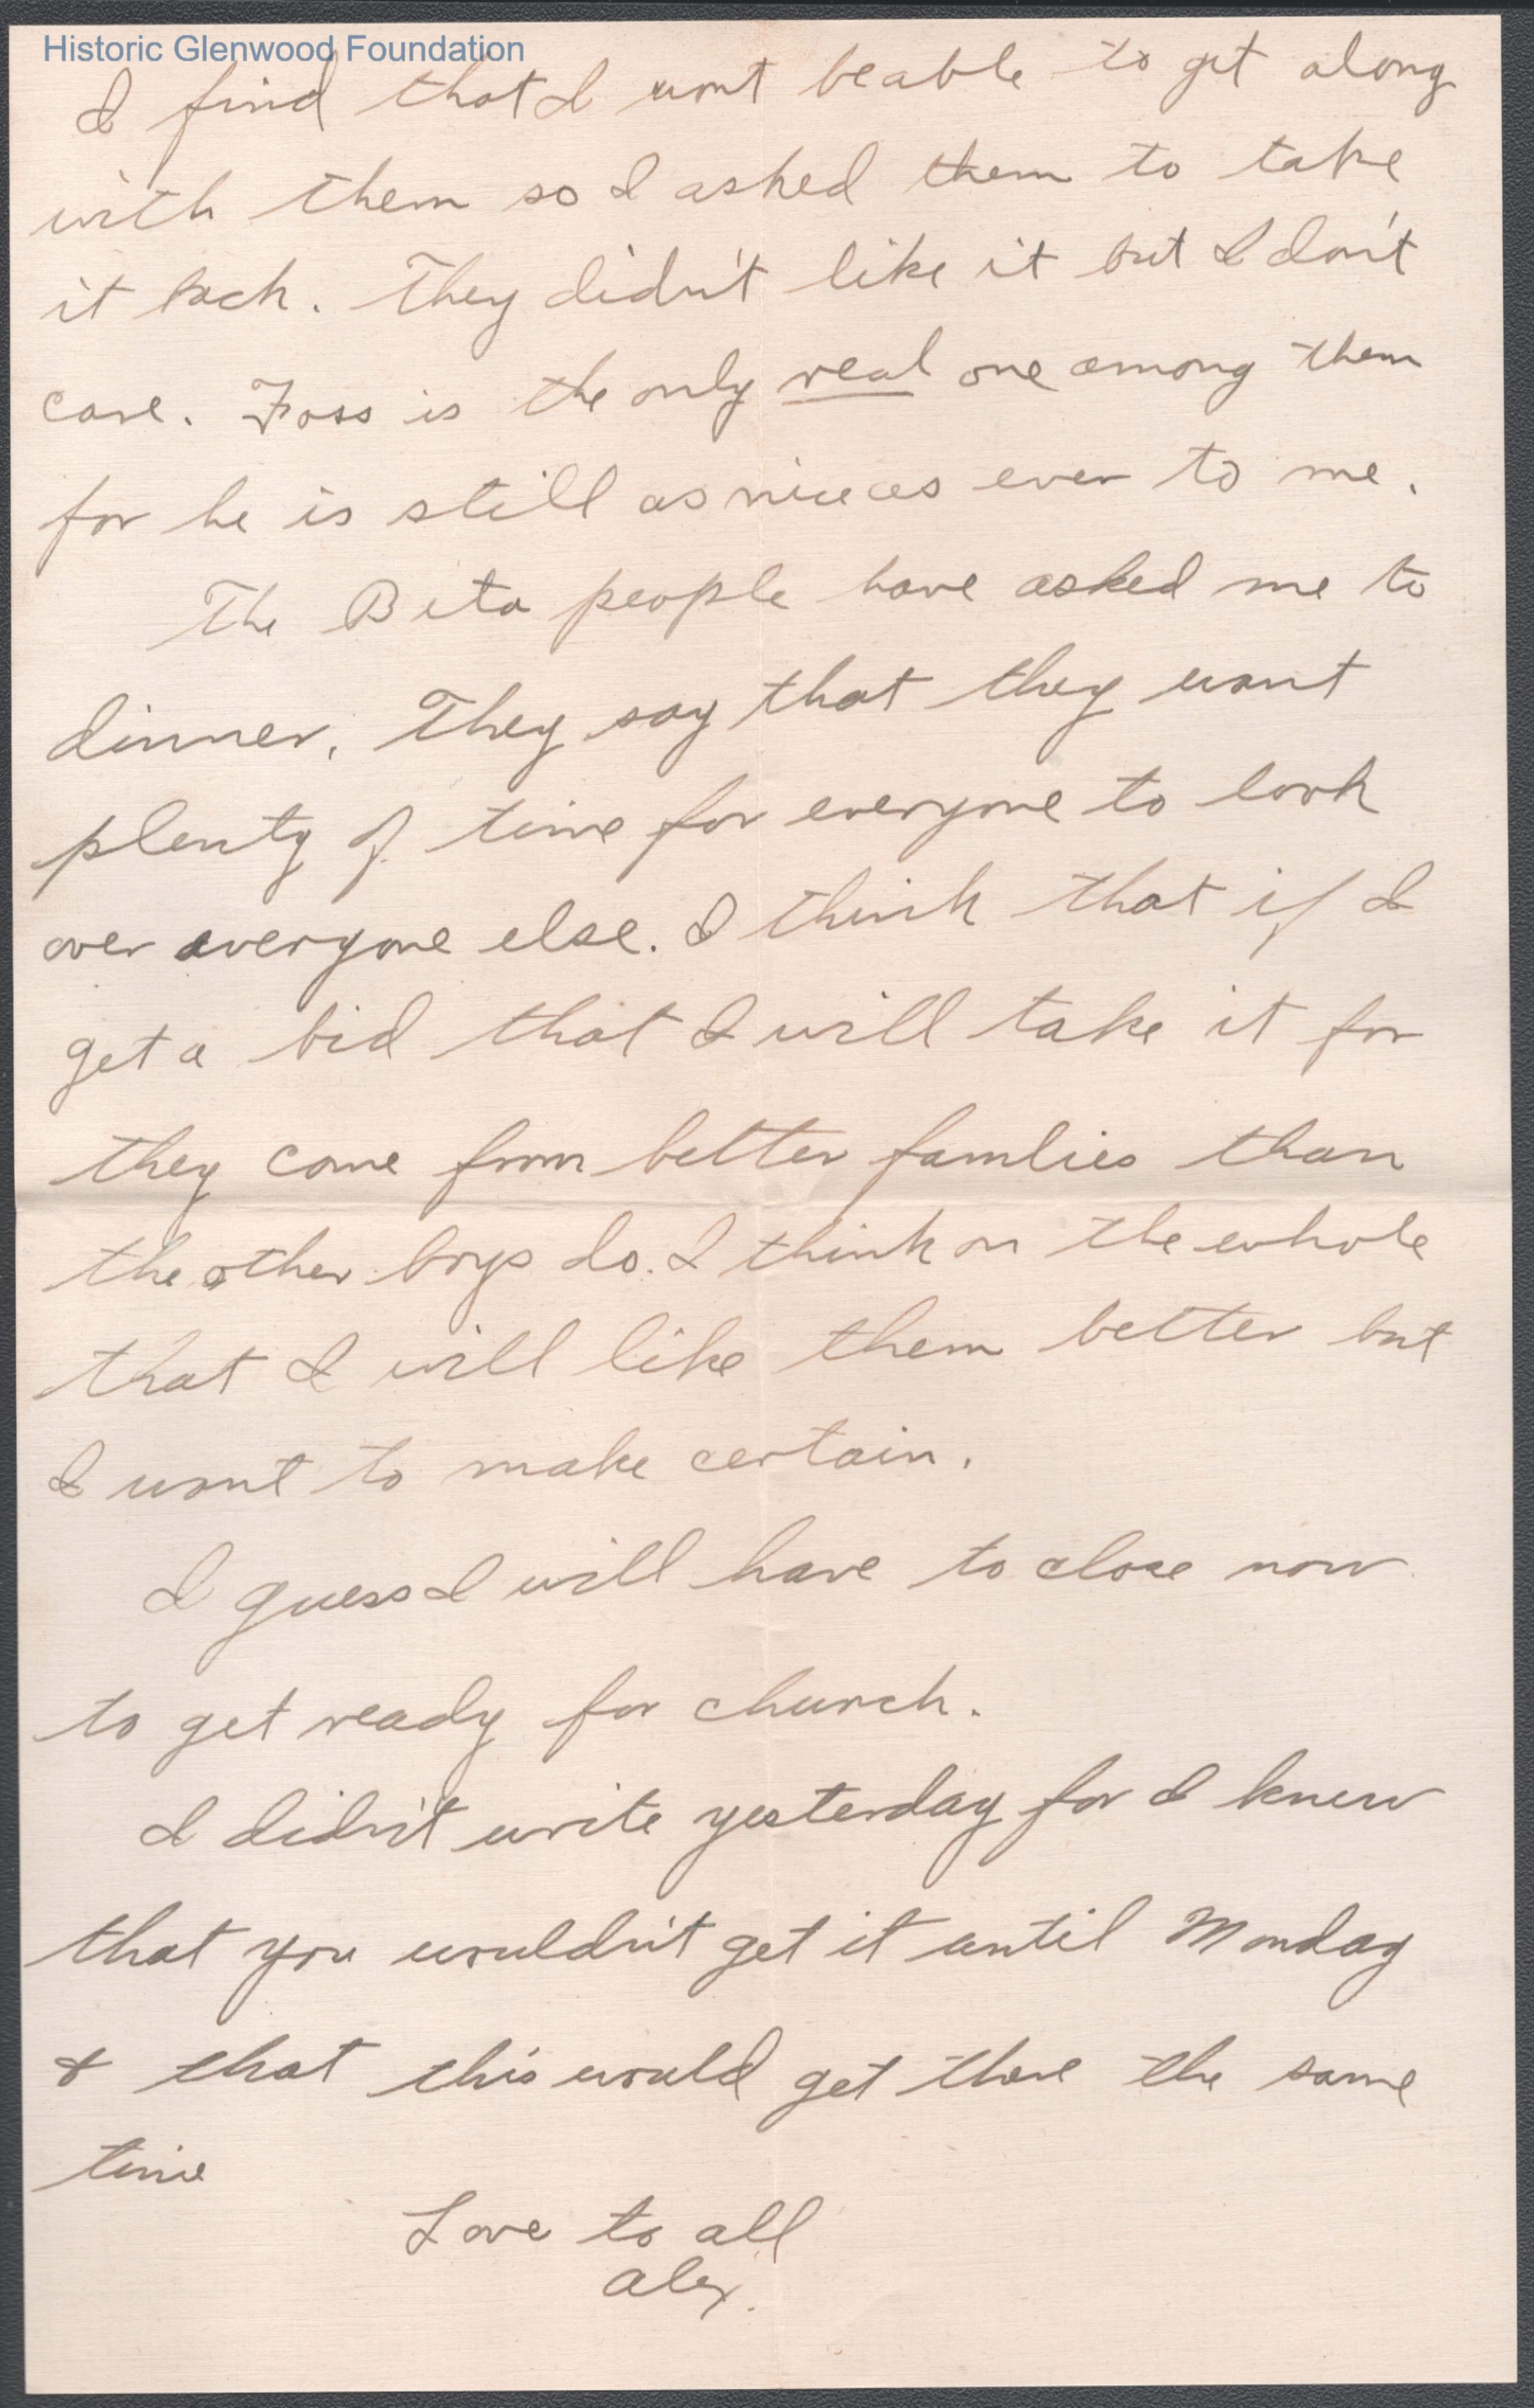 Historic Glenwood Foundation
I find that I wont beable to get along
with them so I asked them to take
it back. They didn't like it but I don't
care. Foss is the only real one among them
for he is still as nice as ever to me.
The Beta people have asked me to
dinner. They say that they want
plenty of time for everyone to look
over everyone else. I think that if I
get a bid that I will take it for
they come from better families than
the other boys do. I think on the whole
that I will like them better but
I want to make certain.
I guess I will have to close now
to get ready for church.
I didn't write yesterday for I knew
that you wouldn't get it until Monday
& that this would get there the same
time
Love to all
Alex.